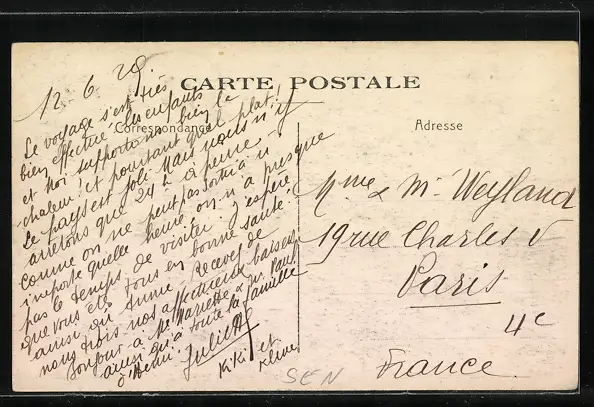 12-6 29
CARTE POSTALE
Correspondance
Adresse
Le voyage s'est très
bien effectué les enfants
et moi supportons bien la
chaleur et pourtant quel plat!
Le pays est joli mais nous n'y
arrêtons que 24 h à peine
comme on ne peut pas sortir à n
importe quelle heure on n'a presque
pas le temps de visiter. J'espère
que vous êtes tous en bonne santé
ainsi qu' Recevez de
nous trois nos affectueux baisers
Bonjour à Mariette & Paul
ainsi qu'à toute la famille
d'Henri. Juliette
Kiki et
Mme & Mr Weyland
19 rue Charles V
Paris
4e
France.
SEN